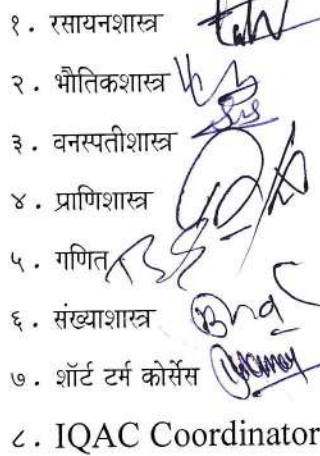 १. रसायनशास्त्र
२. भौतिकशास्त्र
३. वनस्पतीशास्त्र
४. प्राणिशास्त्र
५. गणित
६. संख्याशास्त्र
७. शॉर्ट टर्म कोर्सेस
८. IQAC Coordinator